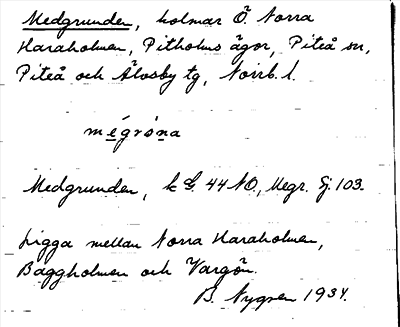 Medgrunden, holmar Ö. Norra
Haraholmen, Pitholms ägor, Piteå sn,
Piteå och Älvsby tg, Norrb. l.
mégróna
Medgrunden, k G. 44 NO., Megr. Gj. 103.
Ligga mellan Norra Haraholmen,
Baggholmen och Vargön.
B. Nygren 1934.